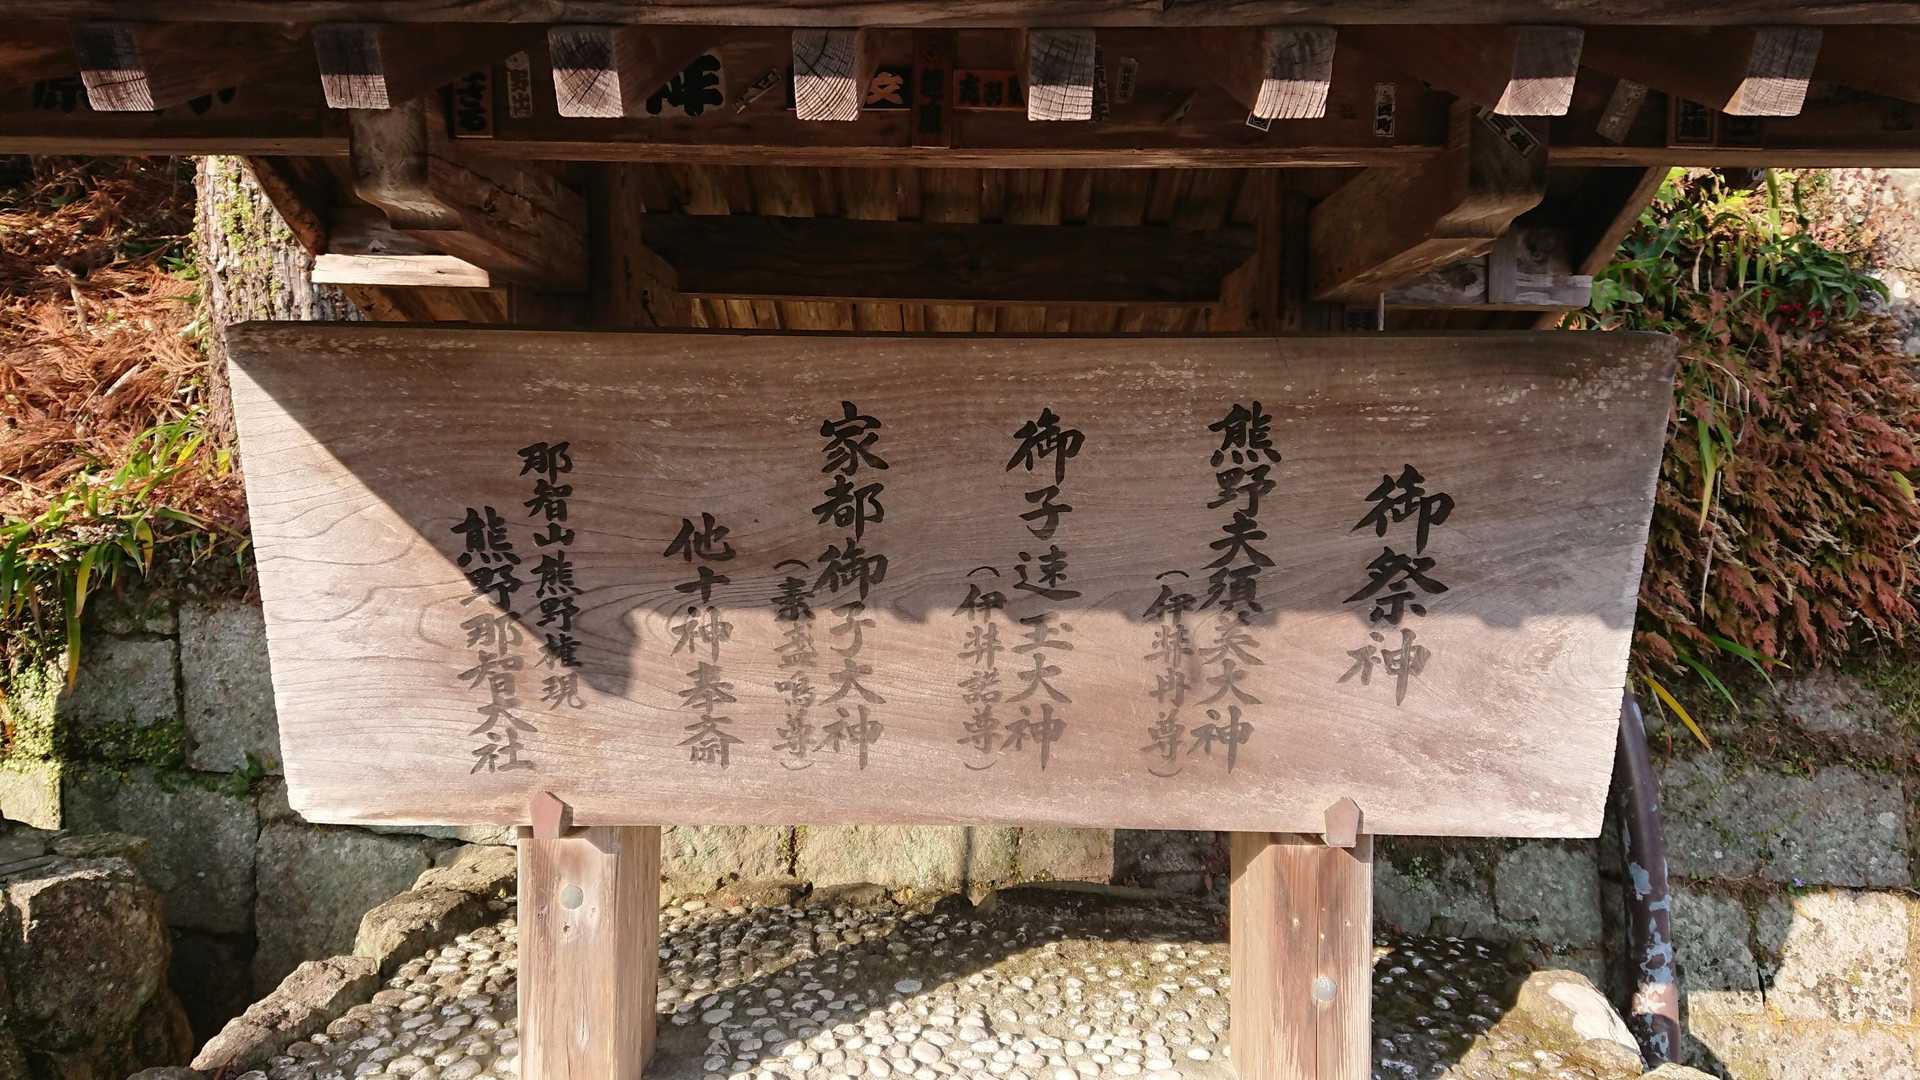 御祭神
熊野夫須美大神
（伊弉冉尊）
御子速玉大神
（伊弉諾尊）
家都御子大神
（素盞嗚尊）
他十神奉斎
那智山熊野権現
熊野那智大社